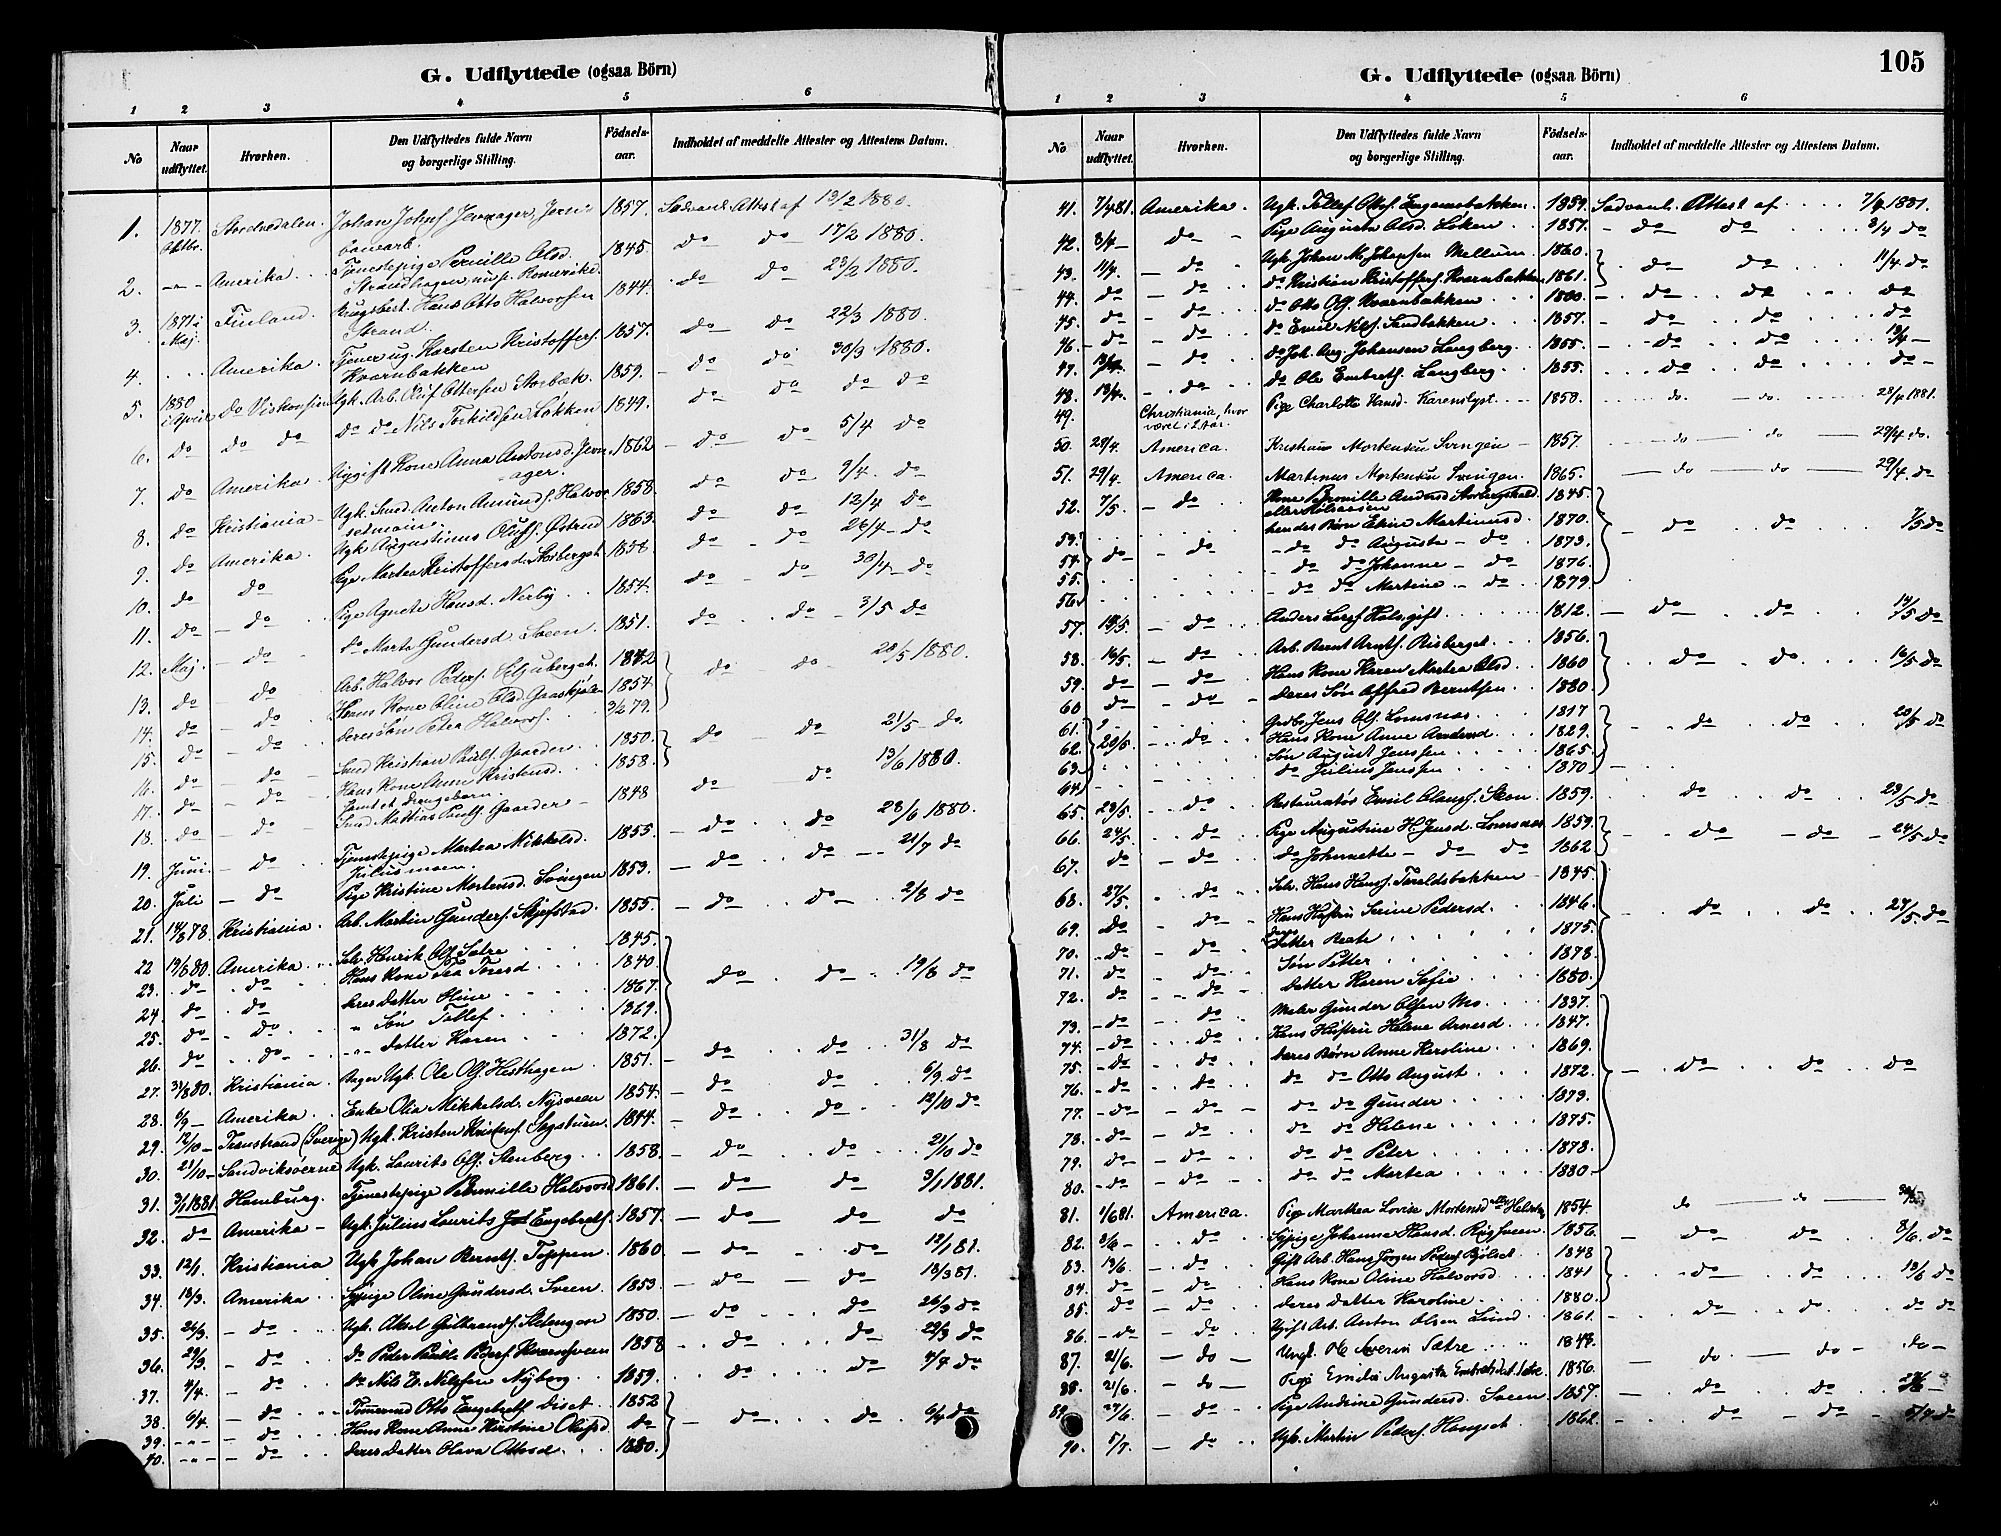 G. Udflyttede (ogsaa Börn)
1 2 3 4 5 6
No Naar udflyttet. Hvorhen. Den Udflyttedes fulde Navn og borgerlige Stilling. Födsels-aar. Indholdet af meddelte Attester og Attestens Datum.
1. 1877. Johan Johnf. 1857. Sædvanl. Attest af 13/2 1880.
2. Amerika Tjenestepige Pernille Olsd. 1845. do do 17/2 1880.
3. 1871 i Maj. Finland. Hans Otto Halvorsen Strand. 1844. do do 23/2 1880.
4. Amerika. Karsten Kristoffers. Kværnbakken 1857. do do 22/3 1880.
5. 1880 i April do Viskonsin Ugk. Arb. Oluf Ottersen Storbæk. 1859. do do 30/3 1880.
6. do do do do do Nils Torkildsen Løkken 1849. do do do do
7. do Amerika Nygift Kone Anna Antonsd. 1862 do do 5/4 do
8. do Kristiania Ugk. Smed Anton Amunds. 1858. do do 9/4 do
9. do Amerika. Ugk. Augustinus Olufs. Østrud 1863. do do 13/4 do
10. do do Pige Martea Kristoffersd. Storberget 1858. do do 26/4 do
11. do do Pige Agnete Hansd. Nerby 1854. do do 30/4 do
12. Maj. do do Marte Gundersd. Sveen. 1851. do do 3/5 do
13. do do Arb. Halvor Peders. 1842 do do 28/5 1880.
14. do do Hans Kone Oline Olsd. 1854
15. do do deres Søn Peter Halvors. 3/2 79.
16. do do Smed Kristian Pauls. Gaarder 1850. do do 21/5 do
17. do do Hans Kone Anne Kristensd. 1858.
18. do do Smed Mattias Pauls. Gaarder 1848 do do 13/6 1880.
19. Juni do Tjenestepige Martea Mikkelsd. Juliusmoen 1855. do do 23/6 1880.
20. Juli do Pige Kristine Mortensd. Svingen 1859. do do 21/7 do
21. 14/8 78. Kristiania. Arb. Martin Gunders. Skjefstad. 1855. do do 2/8 do
22 19/8 80. Amerika Selv. Henrik Ols. Sætre 1845. do do 19/8 do
23. do do Hans Kone Toresd. 1840.
24 do do deres datter Oline 1867.
25. do do " Søn Tollef 1869.
26. do do " datter Karen 1872.
27. 31/8 80. Kristiania Bager Ugk. Ole Ols. Hesthagen 1851. do do 31/8 do
28. 6/9 Amerika Enke Olia Mikkelsd. Nysveen 1854. do do 6/9 do
29. 12/10 Transtrand (Sverige) Ugk. Kristen Kristens. Sagstuen 1844. do do 12/10 do
30. 21/10 Sandviksøerne Ugk. Laurits Ols. Stenberg 1858. do do 21/10 do
31. 3/1 1881. Hamburg. Tjenestepige Pernille Halvorsd. 1861. do do 3/1 1881.
32. do Amerika Ugk. Julius Laurits Engebrets. 1857. do do do
33. 12/1. Kristiania Ugk. Johan Bernts. Toppen 1860 do do 12/1 81.
34. 18/3. Amerika Sypige Oline Gundersd. Sveen 1853 do do 18/3 81.
35. 26/3. do Ugk. Aksel Gulbrands. 1850. do do 26/3 do
36. 29/3. do do Peder Pauls. 1858 do do 29/3 do
37. 4/4. do do Nils E. Nilssen Nyborg 1859. do do 4/4 do
38. 6/4. do Tømmermd. Otto Engebrets. Diset 1852 do do 6/4 do
39. do Hans Kone Anne Kirstine Olufsd. do
40. do deres datter Olava Ottosd. 1880.
105
G. Udflyttede (ogsaa Börn)
1 2 3 4 5 6
No Naar udflyttet. Hvorhen. Den Udflyttedes fulde Navn og borgerlige Stilling. Födsels-aar. Indholdet af meddelte Attester og Attestens Datum.
41. 7/4 81. Amerika. Ugk. Tollef Ottos. Engemobakken 1859. Sædvanl. Attest af 7/4 1881.
42. 3/4 do Pige Augusta Olsd. Løken 1857. do do 3/4 do
43. 11/4 do Ugk. Johan M. Johansen Mellum 1860. do do 11/4 do
44. do do do Kristian Kristoffers. Kværnbakken 1861.
45. do do do Otto Ols. Kværnbakken 1860. do do do
46. do do do Emil Nils. Sandbakken 1857. do do do
47. 13/4 do do Joh. Aug. Johansen Langberg 1855. do do 13/4
48. 13/4. do do Ole Embrets. Langberg 1855. do do do
49. Christiania, hvor været i 2 Aar. Pige Charlotte Hansd. Karenslyst 1850. do do 28/4 1881.
50. 29/4. America. Kristian Mortensen Svingen 1857. do do 29/4 do.
51. 29/4. America. Martinus Mortensen Svingen 1865. do do 29/4. do
52. 7/5. do Kone Pernille Andersd. 1845. do do 7/5 do
53. hendes Børn Eline Martinusd. 1870.
54. do do do do Auguste do 1873.
55. do do Johanne do 1876
56. do do Martine do 1879
57. 13/5. do Anders Lars. 1812. do do 13/5 do
58. 16/5. do Arb. Bernt Arnts. Risberget 1856. do do 16/5 do
59. do do Hans Kone Karen Martea Olsd. 1860
60 do do deres Søn Alfred Berntsen 1880.
61. Gdbr. Jens Ols. Lomsnæs 1817 do do 20/5 do
62. 20/5. do Hans Kone Anne Andersd. 1829.
63. Søn August Jenssen 1865
64. do Julius Jenssen 1870
65. 23/5. do Restauratør Emil Olaus. Steen 1859. do do 23/5 do
66. 24/5. do Pige Augustine H. Jensd. Lomsnæs 1859. do do 24/5 do
67. do do do Johannette do do 1862
68. 27/5. do Selv. Hans Hans. Taraldsbakken 1845. do do 27/5. do
69. do do Hans Hustru Serine Pedersd. 1846.
70. do do deres datter Beate 1875.
71. do do Søn Petter 1878.
72. do do datter Karen Sofie 1880.
73. do do Maler Gunder Olsen Mo 1837. do do do
74. do do Hans Hustru Helene Arnesd. 1847.
75. do do deres Børn Anne Karoline 1869.
76. do do do do Otto August 1872.
77. do do do do Gunder 1873.
78. do do do do Helene 1875.
79. do do do do Peter 1878.
80. do do do do Martea 1880
81. 1/6 81. America. Pige Marthea Lovise Mortensd. 1854. do do
82. 8/6 do Sypige Johanne Hansd. 1856. do do 8/6. do
83. 13/6. do Gift Arb. Hans Jørgen Peders. Bjølset 1848 do do 13/6 do
84. do do Hans Kone Oline Halvorsd. 1841
85. do do deres datter Karoline 1880.
86. do do Ugift Arb. Anton Olsen Lund 1861. do do do do
87. 21/6. do Ungk. Ole Severin Sætre 1848. do do do
88. 21/6. do Pige Emilie Augusta Embretsdat. Sætre 1856.
89. do Pige Andrine Gundersd. Sveen 1857. do do
90. 5/7. do Ugk. Martin Peders. Haugset 1862. do do 5/7 do